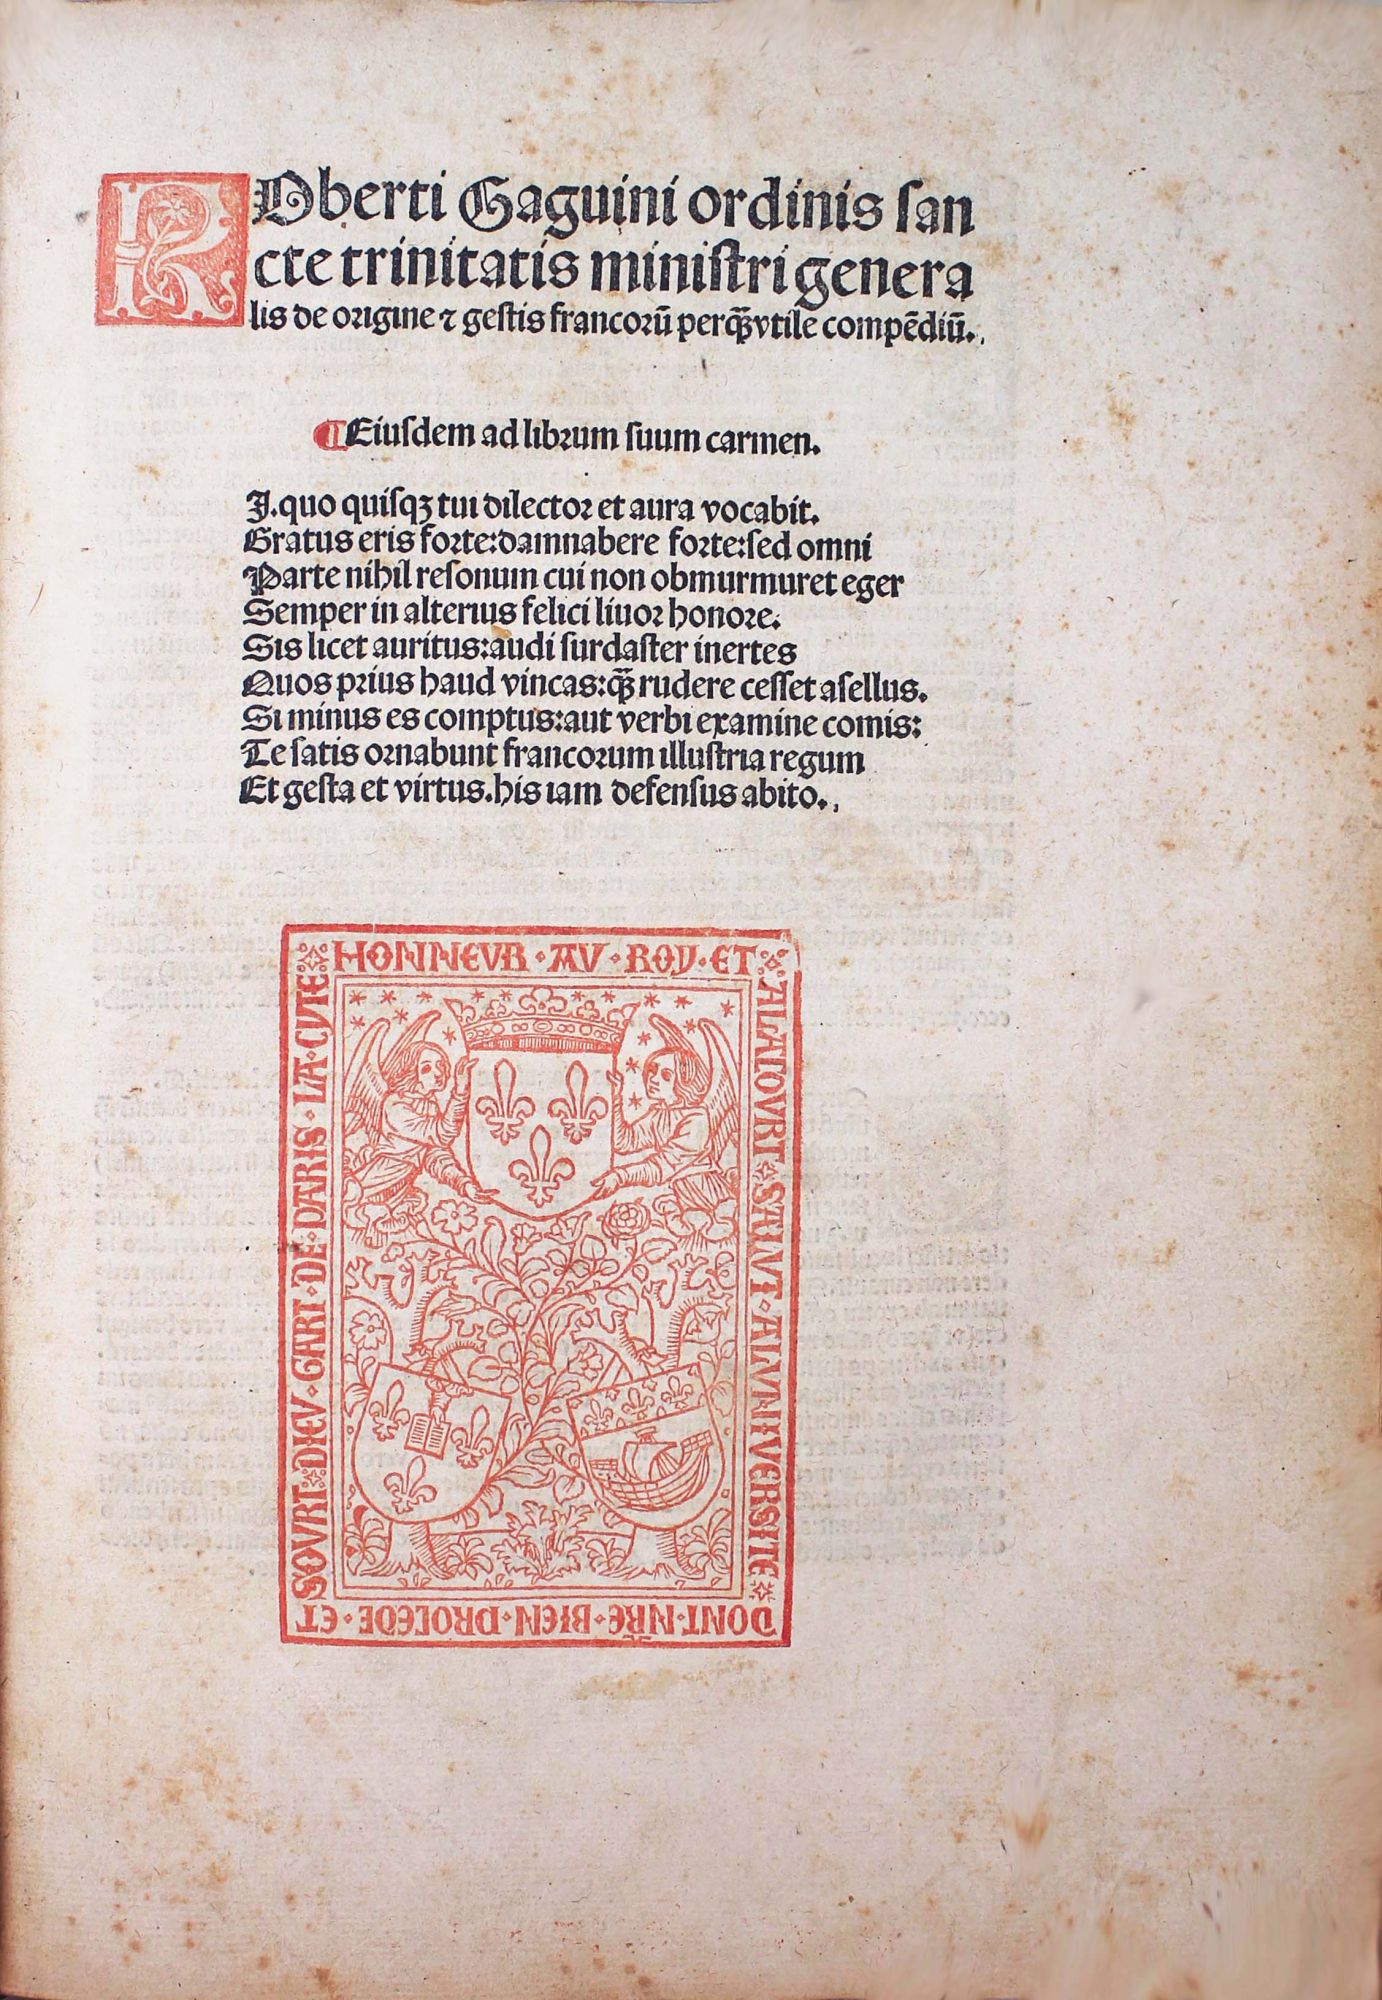 ROberti Gaguini ordinis san
cte trinitatis ministri genera
lis de origine ⁊ gestis francorū perqꝫ̄ vtile compēdiū.
¶ Eiusdem ad librum suum carmen.
I. quo quisqꝫ tui dilector et aura vocabit.
Gratus eris forte: damnabere forte: sed omni
Parte nihil resonum cui non obmurmuret eger
Semper in alterius felici liuor honore.
Sis licet auritus: audi surdaster inertes
Quos prius haud vincas: qꝫ̄ rudere cesset asellus.
Si minus es comptus: aut verbi examine comis:
Te satis ornabunt francorum illustria regum
Et gesta et virtus. his iam defensus abito.
HONNEVR · AV · ROY · ET
A LA COVRT · SALVT · A LVNIVERSITE
DONT · NRE · BIEN · PROCEDE · ET
SOVRT · DIEV · GART · DE · PARIS · LA · CYTE